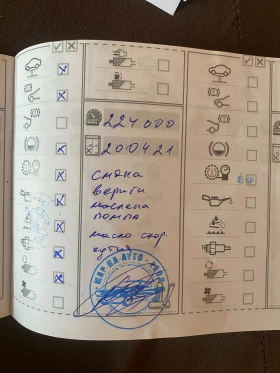 224000
200421
смяна
вериги
маслена
помпа
масло скор.
кутия
МАР НА АУТО